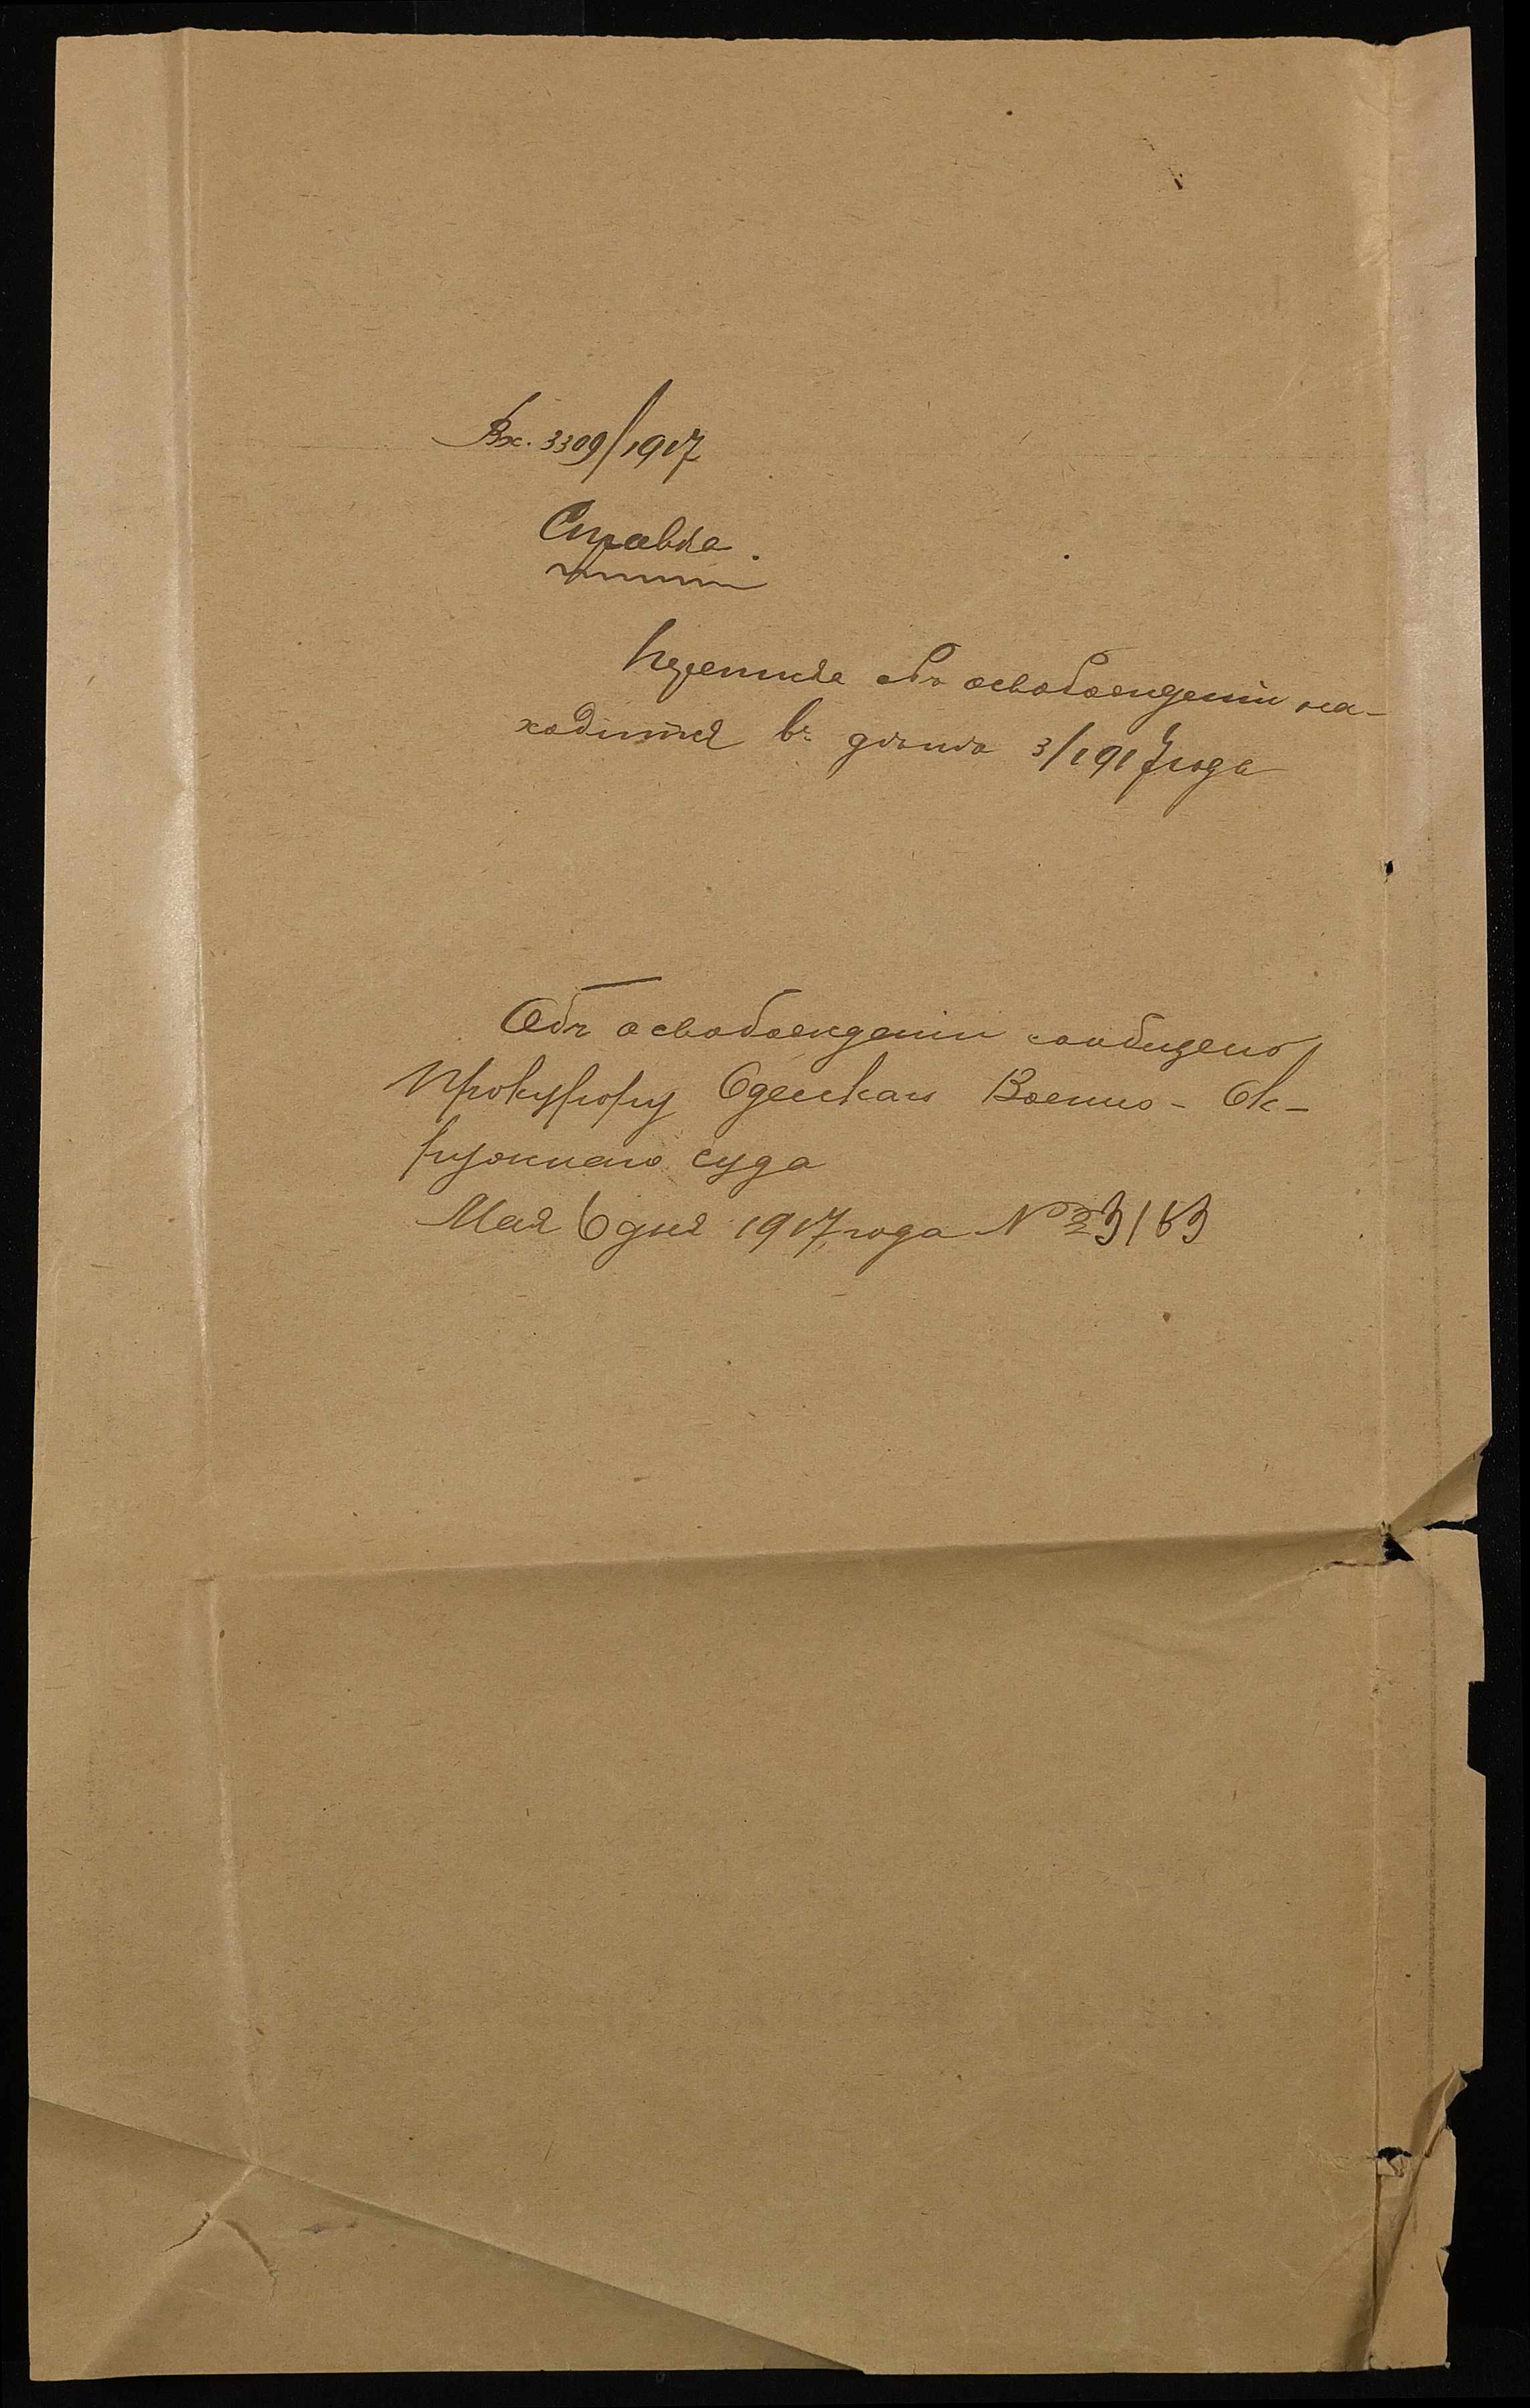 Вх. 3309/1917
Справка.
Переписка объ освобожденіи на-
ходится въ дѣлѣ 3/1917 года
Объ освобожденіи сообщено
Прокурору Одесскаго Военно-Ок-
ружнаго суда
Мая 6 дня 1917 года №